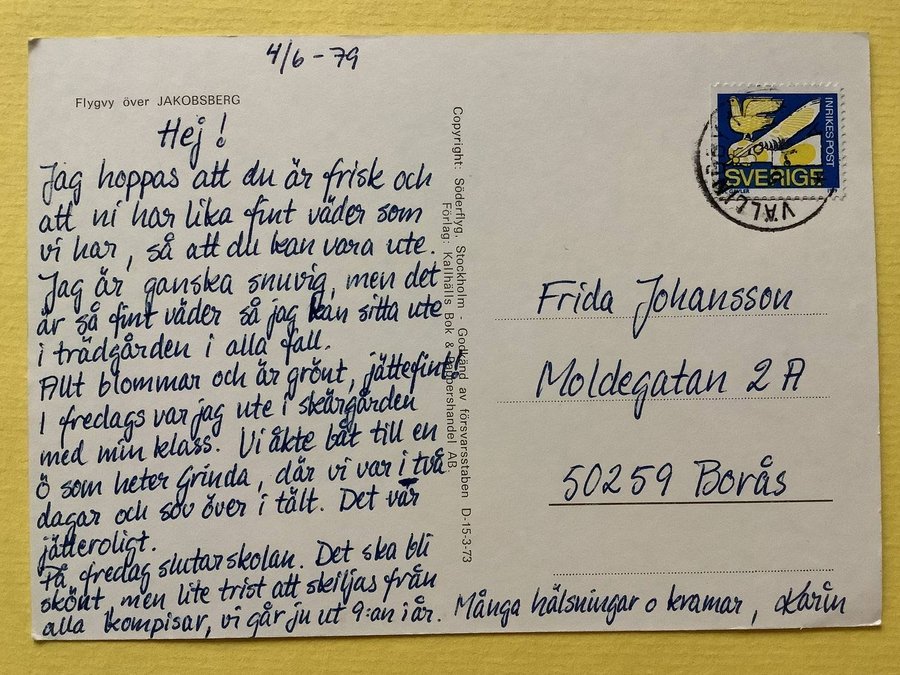 4/6 - 79
Flygvy över JAKOBSBERG
Hej!
Jag hoppas att du är frisk och
att ni har lika fint väder som
vi har, så att du kan vara ute.
Jag är ganska snuvig, men det
är så fint väder så jag kan sitta ute
i trädgården i alla fall.
Allt blommar och är grönt, jättefint!
I fredags var jag ute i skärgården
med min klass. Vi åkte båt till en
ö som heter Grinda, där vi var i två
dagar och sov över i tält. Det var
jätteroligt.
På fredag slutar skolan. Det ska bli
skönt, men lite trist att skiljas från
alla kompisar, vi går ju ut 9:an i år. Många hälsningar o kramar, Karin
Copyright: Söderflyg, Stockholm - Godkänd av försvarsstaben D-15-3-73
Förlag: Kallhälls Bok & Pappershandel AB.
INRIKES POST
SVERIGE
VÄLLI
Frida Johansson
Moldegatan 2 A
50259 Borås